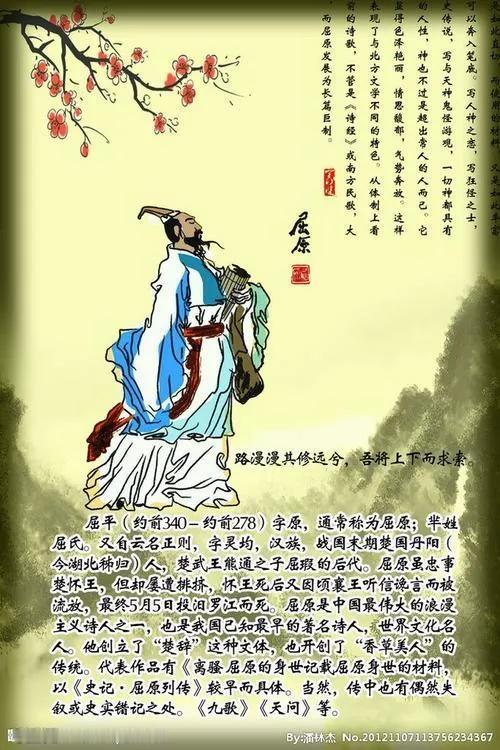 可以奔入笔底。写人神之恋，写狂怪之士，
史传说，写与天神鬼怪游观，一切神都具有
的人性，神也不过是超出常人的人而已。它
显得色泽艳丽，情思馥郁，气势奔放。这样
表现了与北方文学不同的特色。从体制上看
前的诗歌，不管是《诗经》或南方民歌，大
而屈原发展为长篇巨制。
屈原
路漫漫其修远兮，吾将上下而求索。
屈平（约前340－约前278）字原，通常称为屈原；芈姓
屈氏。又自云名正则，字灵均，汉族，战国末期楚国丹阳（
今湖北秭归）人，楚武王熊通之子屈瑕的后代。屈原虽忠事
楚怀王，但却屡遭排挤，怀王死后又因顷襄王听信谗言而被
流放，最终5月5日投汨罗江而死。屈原是中国最伟大的浪漫
主义诗人之一，也是我国已知最早的著名诗人，世界文化名
人。他创立了“楚辞”这种文体，也开创了“香草美人”的
传统。代表作品有《离骚 屈原的身世记载屈原身世的材料，
以《史记·屈原列传》较早而具体。当然，传中也有偶然失
叙或史实错记之处。《九歌》《天问》等。
By:潘林杰 No.20121107113756234367